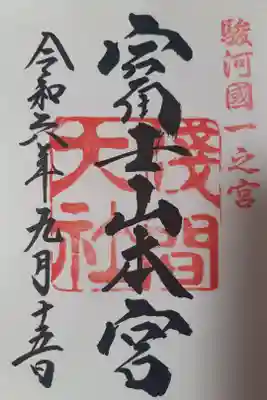 駿河國一之宮
富士山本宮
淺間
天社
令和六年九月十五日